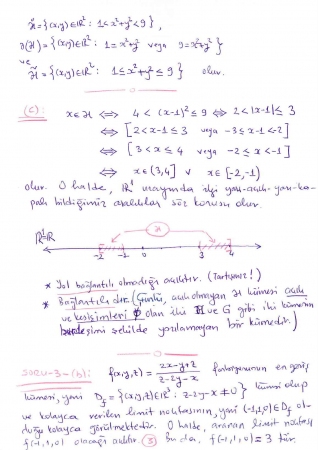 ℋ̊ = {(x,y)∈ℝ²: 1<x²+y²<9},
∂(ℋ) = {(x,y)∈ℝ²: 1=x²+y² veya 9=x²+y²}
ve
ℋ̄ = {(x,y)∈ℝ²: 1≤x²+y²≤9} olur.
(c): x∈ℋ ⟺ 4 < (x-1)² ≤ 9 ⟺ 2<|x-1|≤ 3
⟺ [2<x-1≤3 veya -3≤x-1<-2]
⟺ [3<x≤4 veya -2≤x<-1]
⟺ x∈(3,4] ∨ x∈[-2,-1)
olur. O halde, ℝ¹ uzayında ilgi yarı-açık-yarı-ka-
palı bildiğimiz aralıklar söz konusu olur.
ℝ¹=ℝ
ℋ
-2 -2 0 3 4
* Yol bağlantılı olmadığı açıktır. (Tartışınız!)
* Bağlantılı dır (Çünkü, açık olmayan ℋ kümesi açık
ve kesişimleri ∅ olan iki H ve G gibi iki kümenin
birleşimi şeklinde yazılamayan bir kümedir.)
SORU-3-(b): f(x,y,z) = 2x-y+z / z-2y-x fonksiyonunun en geniş
kümesi, yani D_f = {(x,y,z)∈ℝ³: z-2y-x≠0} kümesi olup
ve kolayca verilen limit noktasının, yani (-1,1,0)∈D_f ol-
duğu kolayca görülmektedir. O halde, aranan limit noktası
f(-1,1,0) olacağı açıktır. (3) Bu da, f(-1,1,0)=3 tür.